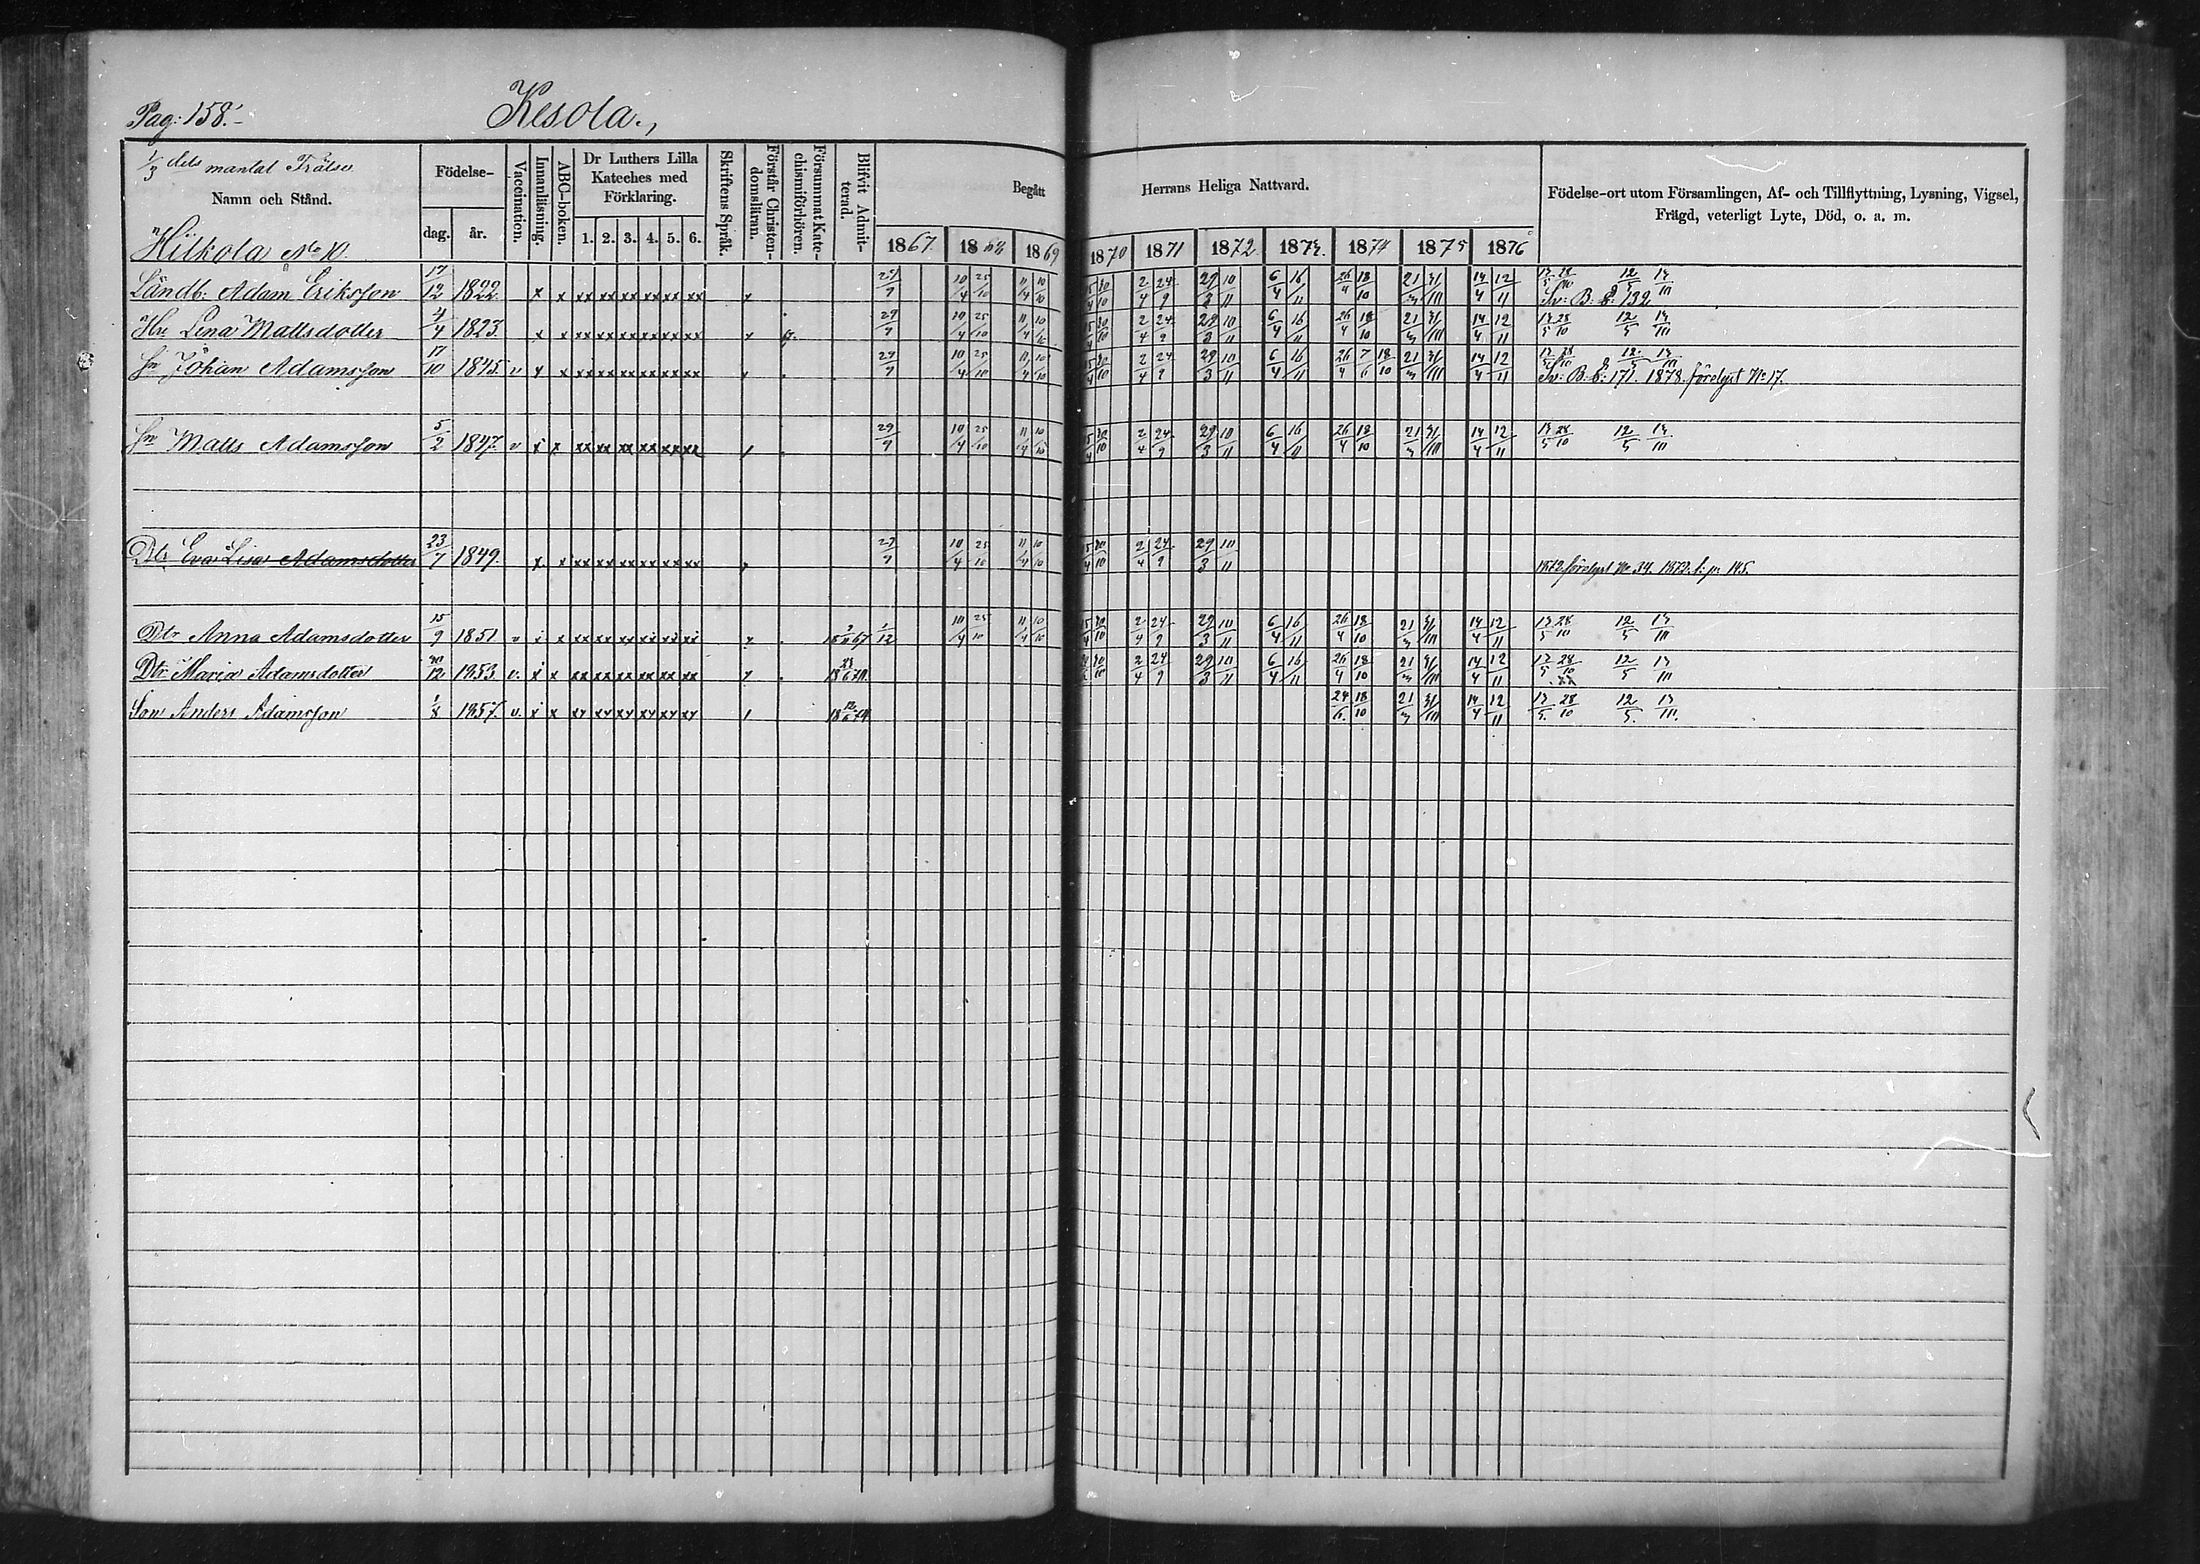 Pag: 158.
Kesola.
1/3 dels mantal Frälse
Namn och Stånd.
Födelse-
dag. år.
Vaccination.
Innanläsning.
ABC-boken.
Dr Luthers Lilla
Kateches med
Förklaring.
1. 2. 3. 4. 5. 6.
Skriftens Språk.
Förstår Christen-
domsläran.
Försummat Kate-
chismiförhören.
Blifvit Admit-
terad.
Begått Herrans Heliga Nattvard.
1867 1868 1869 1870 1871 1872 1873 1874 1875 1876
Födelse-ort utom Församlingen, Af- och Tillflyttning, Lysning, Vigsel,
Frägd, veterligt Lyte, Död, o. a. m.
Hiikola No 10.
Landb: Adam Eriksson 17/12 1822. x x xx xx xx xx xx xx 29/9 10/4 25/10 11/4 10/10 30/10 2/4 24/9 29/3 10/11 6/4 16/11 26/4 18/10 21/3 31/10 14/4 12/11 28/10 12/5
Sv: B. b: 132
Hu Lena Mattsdotter 4/4 1823. x x xx xx xx xx xx xx 29/9 10/4 25/10 11/4 10/10 30/10 2/4 24/9 29/3 10/11 6/4 16/11 26/4 18/10 21/3 14/4 12/11 28/10 12/5
Sn Johan Adamsson 17/10 1845. v x x xx xx xx xx xx xx 29/9 10/4 25/10 11/4 10/10 30/10 2/4 24/9 29/3 10/11 6/4 16/11 26/4 7/6 18/10 21/3 14/4 12/11 28/10 12/5
Sv: B. b: 171. 1878. förelyst No 17.
Sn Matts Adamsson 5/2 1847. v x x xx xx xx xx xx xx 29/9 10/4 25/10 11/4 10/10 30/10 2/4 24/9 29/3 10/11 6/4 16/11 26/4 18/10 21/3 14/4 12/11 28/10 12/5
Dtr Eva Lisa Adamsdotter 23/7 1849. x x xx xx xx xx xx xx 29/9 10/4 25/10 11/4 10/10 30/10 2/4 24/9 29/3 10/11
1872 förelyst No 34. 1872. t. p. 145.
Dtr Anna Adamsdotter 15/9 1851 v x x xx xx xx xx xx xx 1/12 10/4 25/10 11/4 10/10 30/10 2/4 24/9 29/3 10/11 6/4 16/11 26/4 18/10 21/3 14/4 12/11 28/10 12/5
Dtr Maria Adamsdotter 1853. v. x x xx xx xx xx xx xx 30/10 2/4 24/9 29/3 10/11 6/4 16/11 26/4 18/10 21/3 14/4 12/11 28/10 12/5
Son Anders Adamsson 1/8 1857. v. x x xx xx xx xx xx xx 24/6 18/10 21/3 14/4 12/11 28/10 12/5